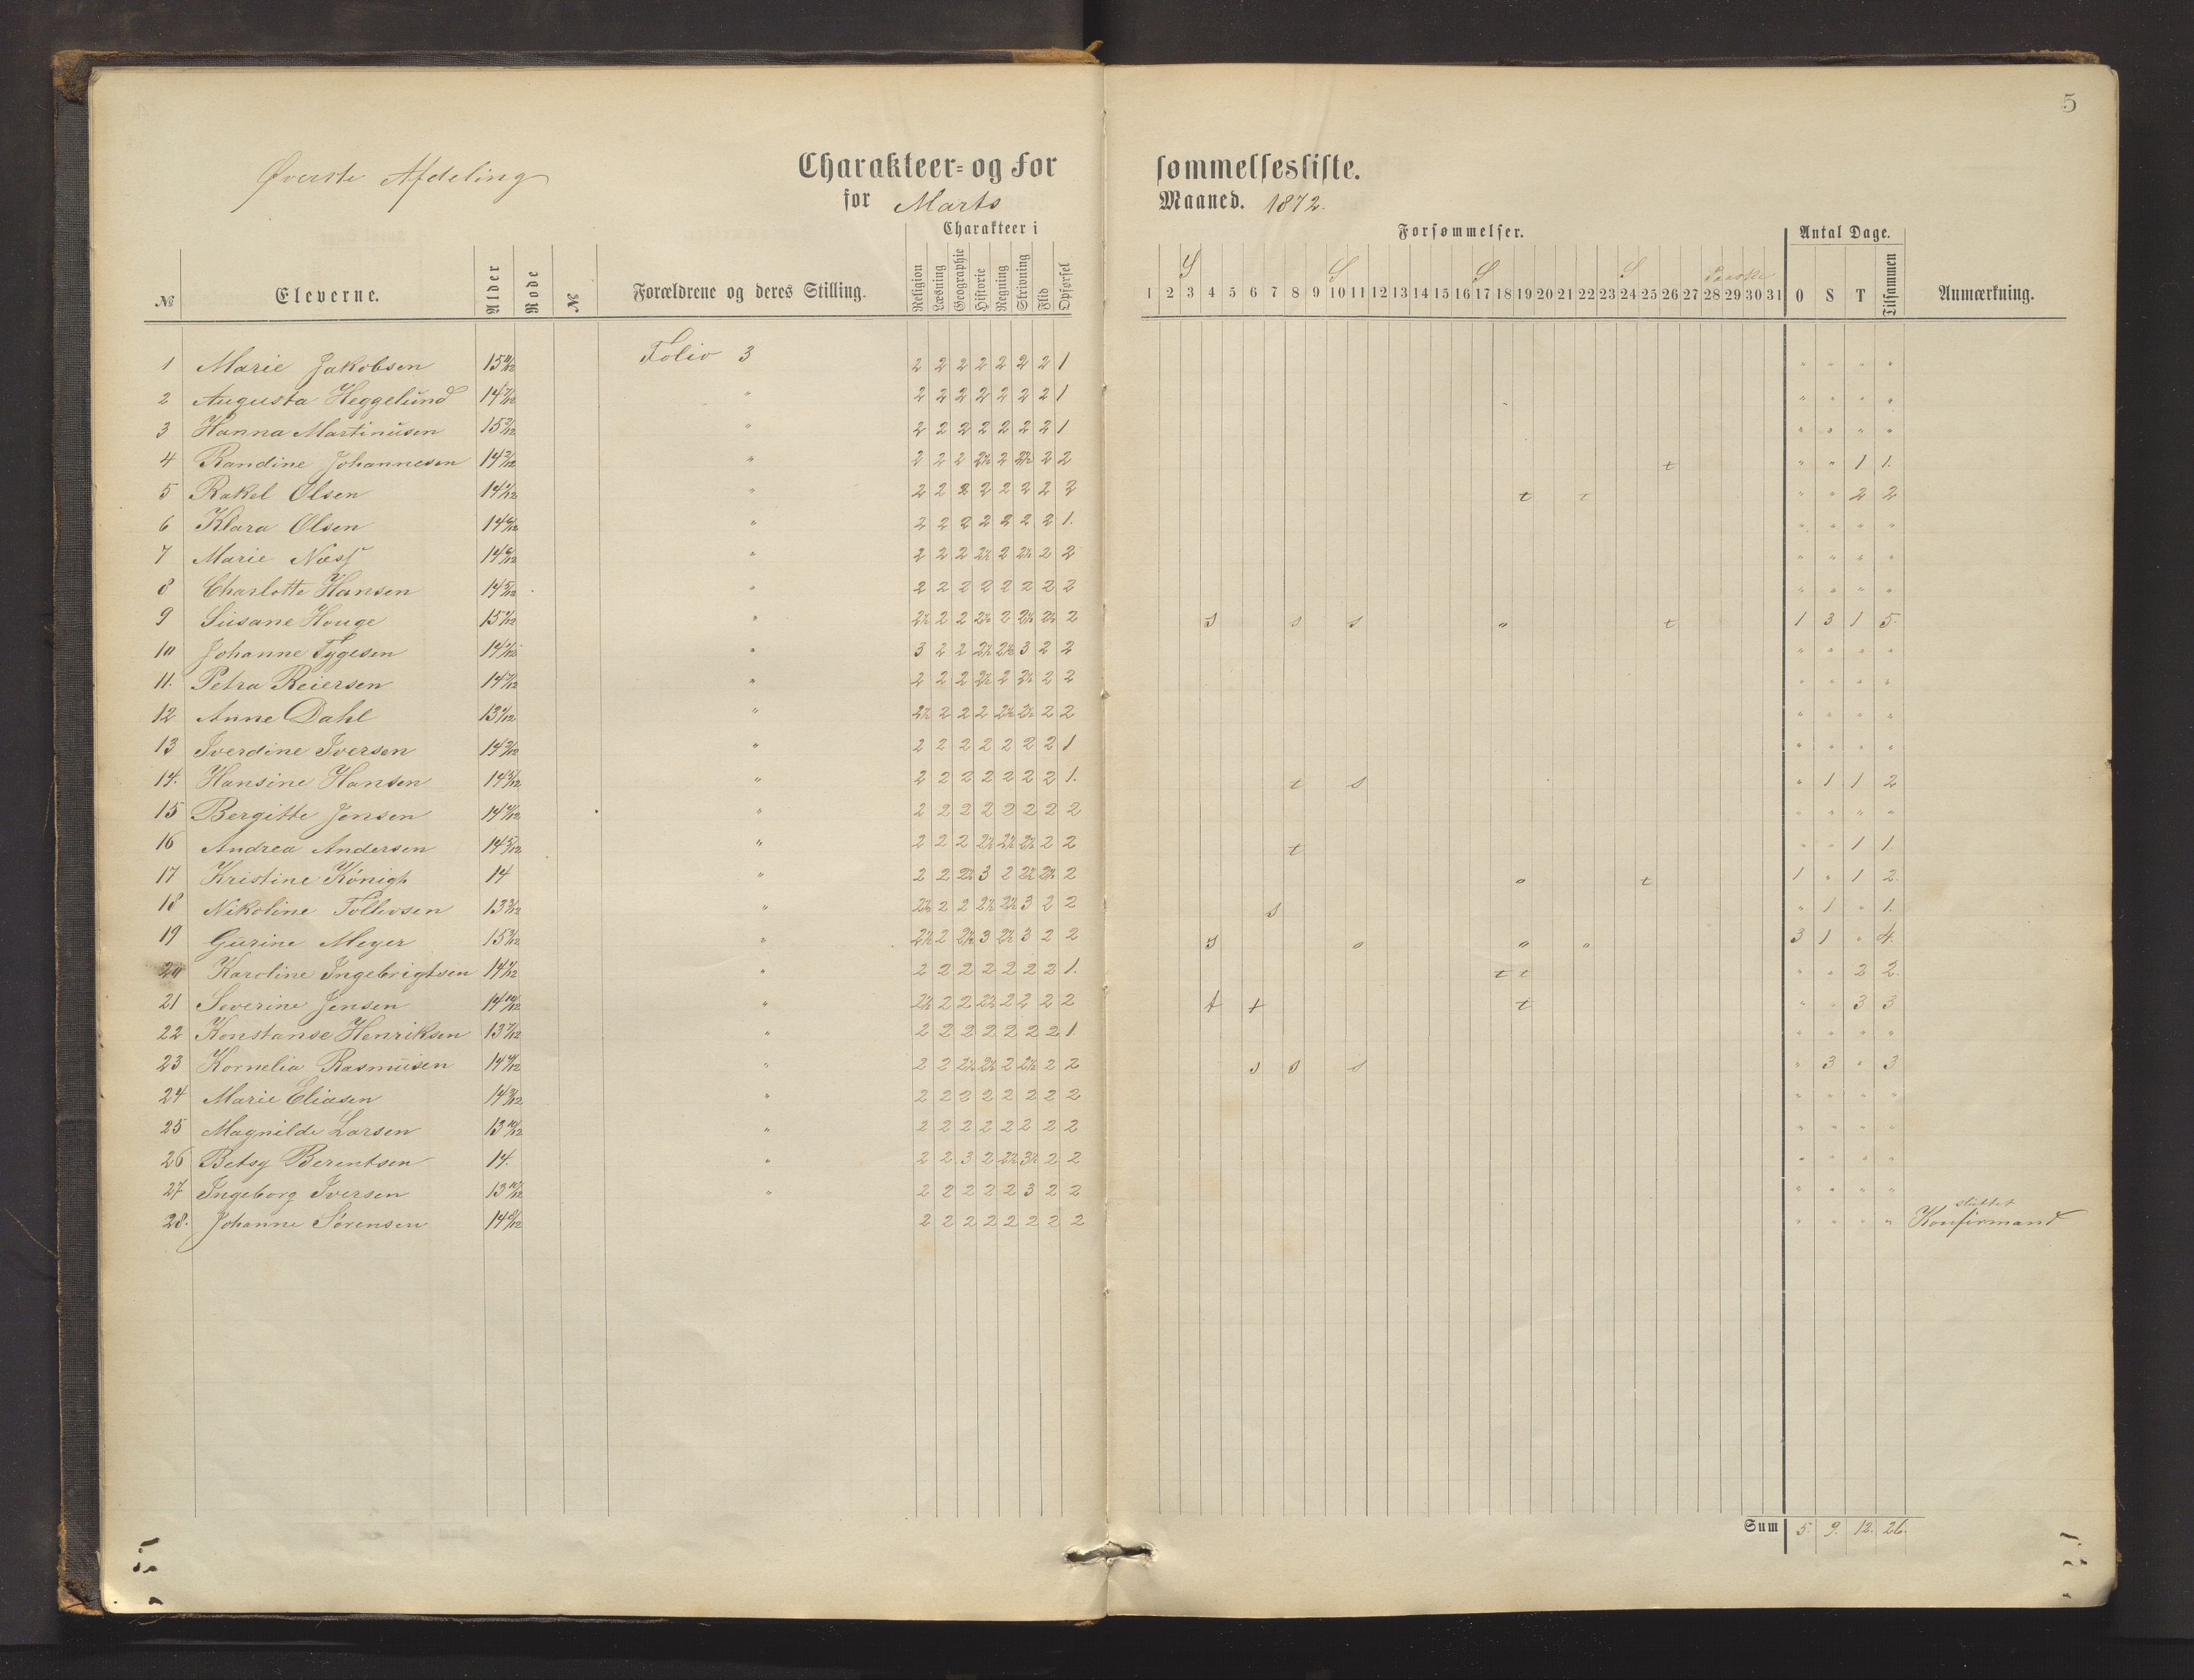 5
Øverste Afdeling
Charakteer- og Forsømmelsesliste.
for Marts Maaned. 1872.
Charakteer i Forsømmelser. Antal Dage.
S S S S Paaske
№ Eleverne. Alder Rode № Forældrene og deres Stilling. Religion Læsning Geographie Historie Regning Skrivning Flid Opførsel 1 2 3 4 5 6 7 8 9 10 11 12 13 14 15 16 17 18 19 20 21 22 23 24 25 26 27 28 29 30 31 O S T Tilsammen Anmærkning.
Folio 3
1 Marie Jakobsen 2 2 2 2 2 2 2 1 " " " "
2 Augusta Heggelund " 2 2 2 2 2 2 2 1 " " " "
3 Hanna Martinusen " 2 2 2 2 2 2 2 1 " " " "
4 Randine Johannesen " 2 2 2 2½ 2 2½ 2 2 t " " 1 1.
5 Rakel Olsen " 2 2 2 2 2 2 2 2 t t " " 2 2
6 Klara Olsen " 2 2 2 2 2 2 2 1. " " " "
7 Marie Næss " 2 2 2 2½ 2 2½ 2 2 " " " "
8 Charlotte Hansen " 2 2 2 2 2 2 2 2 " " " "
9 Susane Houge " 2½ 2 2 2½ 2 2½ 2½ 2 s s s o t 1 3 1 5.
10 Johanne Tygesen " 3 2 2 2½ 2½ 3 2 2 " " " "
11. Petra Reiersen " 2 2 2 2½ 2 2½ 2 2 " " " "
12 Anne Dahl " 2½ 2 2 2 2½ 2½ 2 2 " " " "
13 Iverdine Iversen " 2 2 2 2 2 2 2 1 " " " "
14. Hansine Hansen " 2 2 2 2 2 2 2 1. t s " 1 1 2
15 Bergitte Jensen " 2 2 2 2 2 2 2 2 " " " "
16 Andrea Andersen " 2 2 2 2½ 2½ 2½ 2 2 t " " 1 1.
17 Kristine Königh 14 " 2 2 2½ 3 2 2½ 2½ 2 o t 1 " 1 2.
18 Nikoline Tollevsen " 2½ 2 2 2½ 2½ 3 2 2 s " 1 " 1.
19 Gurine Meyer " 2½ 2 2½ 3 2½ 3 2 2 s o o o 3 1 " 4.
20 Karoline Ingebrigtsen " 2 2 2 2 2 2 2 1. t t " " 2 2.
21 Severine Jensen " 2½ 2 2 2½ 2 2 2 2 t t t " " 3 3
22 Konstanse Henriksen " 2 2 2 2 2 2 2 1. " " " "
23 Kornelia Rasmusen " 2 2 2½ 2½ 2 2½ 2 2 s s s " 3 " 3
24 Marie Eliasen " 2 2 2 2 2 2 2 2 " " " "
25 Magnilde Larsen " 2 2 2 2 2 2 2 2 " " " "
26 Betsy Berentsen 14. " 2 2 3 2 2½ 3½ 2 2 " " " "
27 Ingeborg Iversen " 2 2 2 2 2 3 2 2 " " " "
28. Johanne Sørensen 2 2 2 2 2 2 2 2 " " " " sluttet Konfirmand
Sum 5. 9. 12. 26.